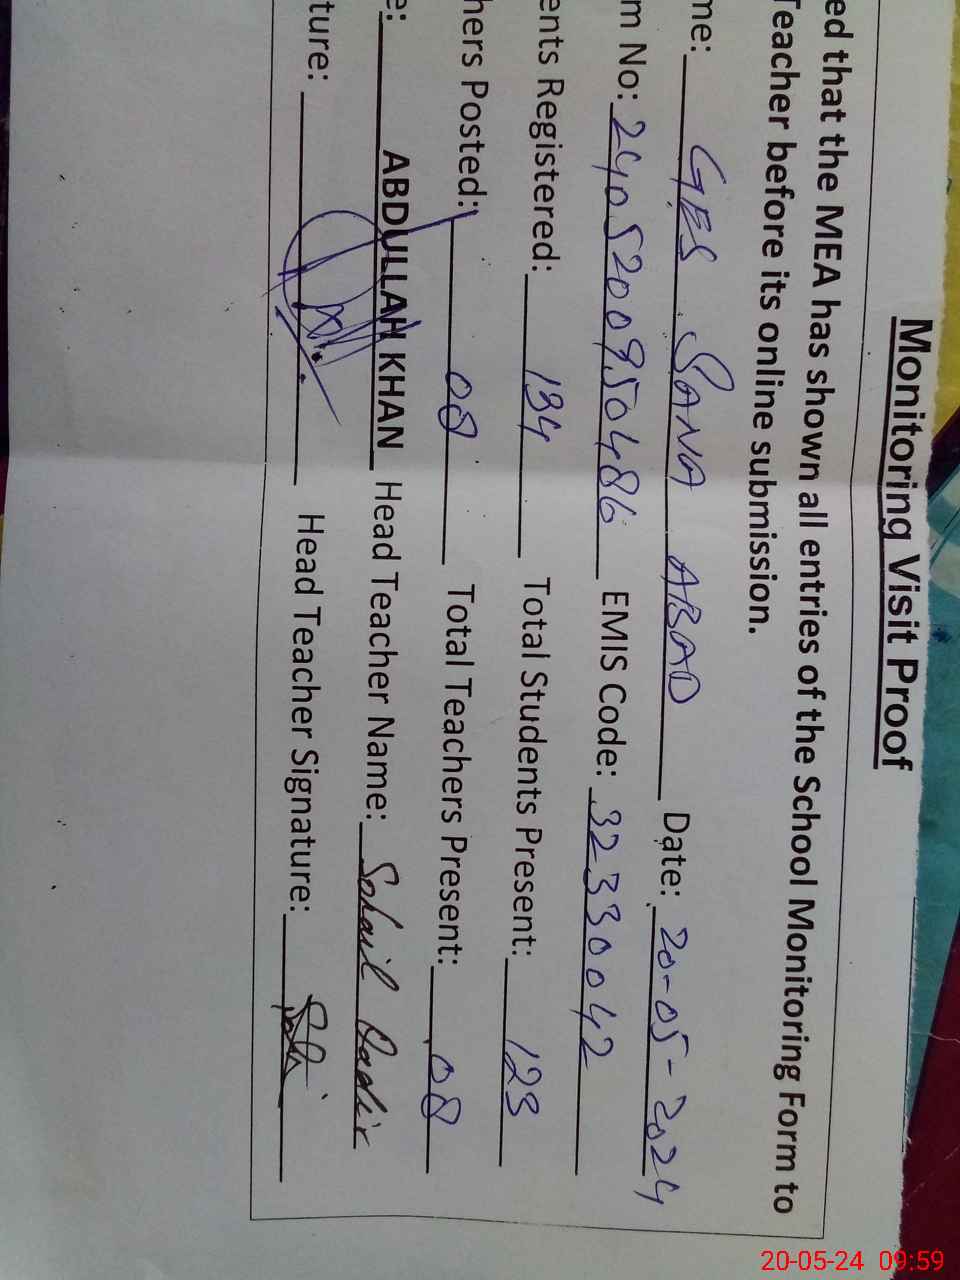 Monitoring Visit Proof
ed that the MEA has shown all entries of the School Monitoring Form to
Teacher before its online submission.
me: GES SANA ABAD Date: 20-05-2024
m No: 2405200950486 EMIS Code: 32330042
ents Registered: 134 Total Students Present: 123
hers Posted: 08 Total Teachers Present: 08
e: ABDULLAH KHAN Head Teacher Name: Sohail Qadir
ture: Head Teacher Signature:
20-05-24 09:59